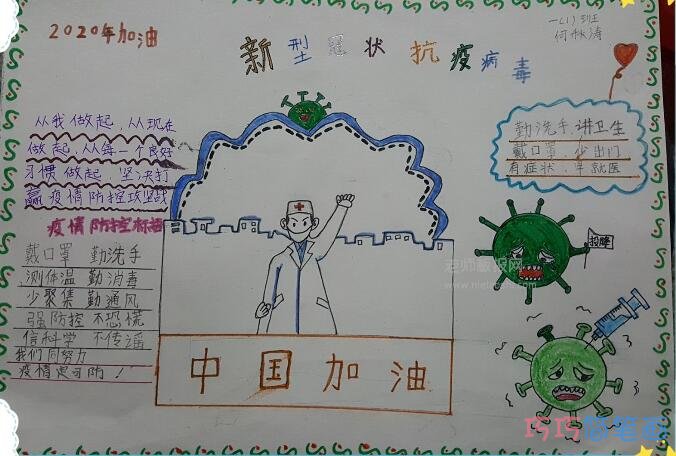 2020年加油
新型冠状抗疫病毒
一(1)班
何秋涛
从我做起,从现在
做起,从每一个良好
习惯做起,坚决打
赢疫情防控攻坚战
疫情防控标语
戴口罩 勤洗手
测体温 勤消毒
少聚集 勤通风
强防控 不恐慌
信科学 不传谣
我们同努力
疫情定可防!
勤洗手,讲卫生
戴口罩,少出门
有症状,早就医
投降
老师板报网
中国加油
巧巧简笔画